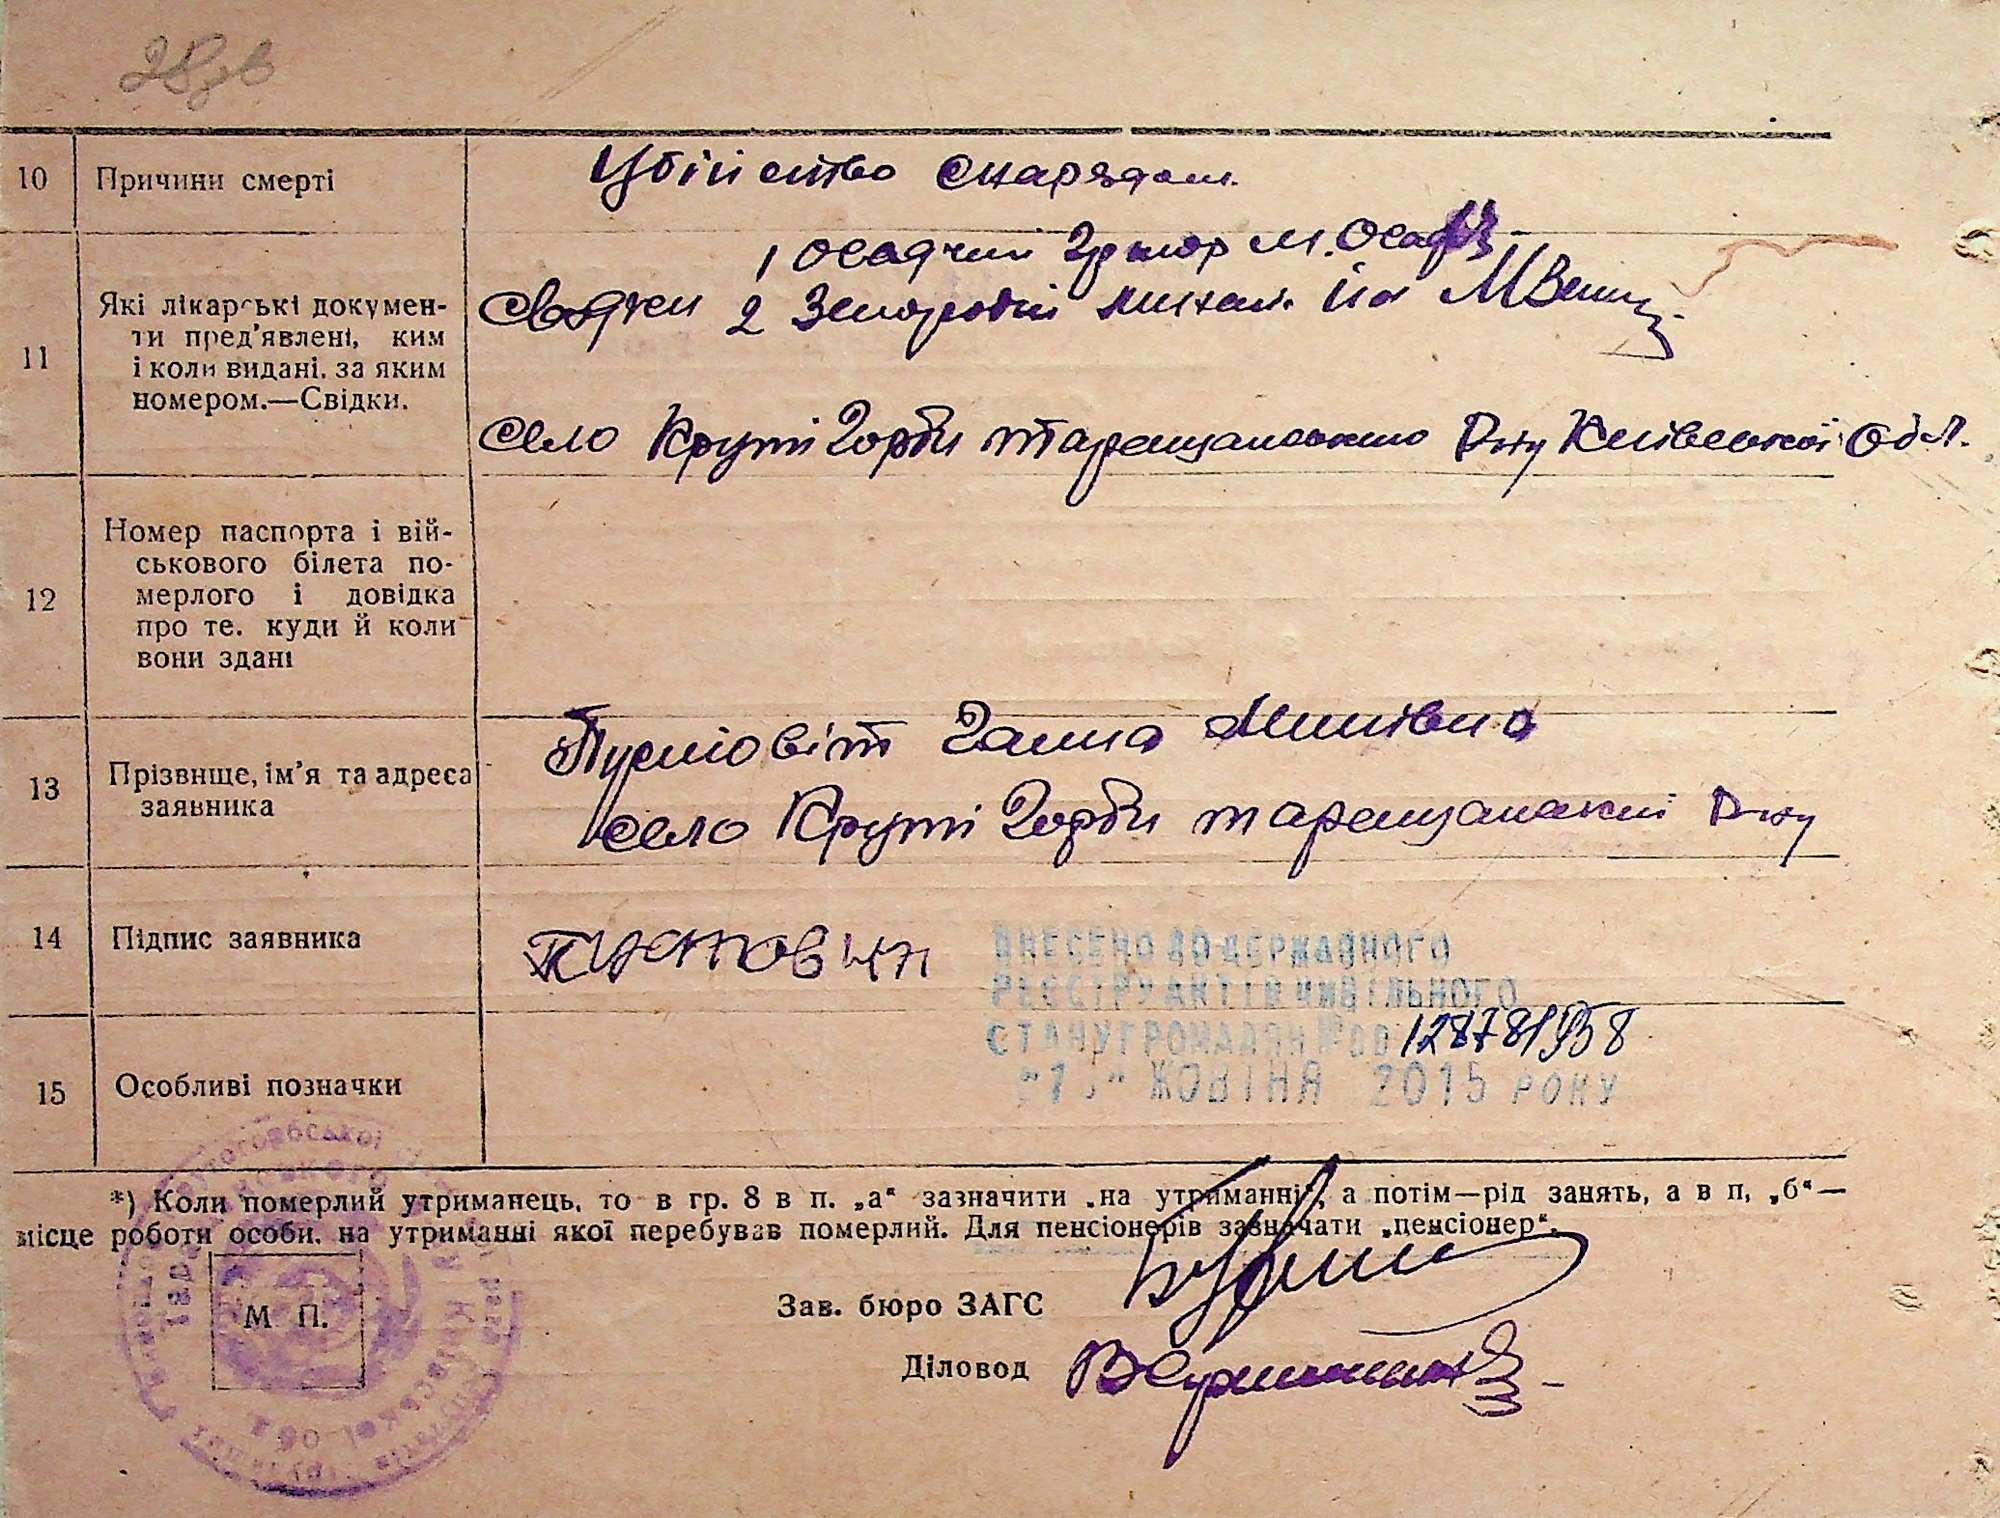 10 Причини смерті
Убійство снарядом.
11 Які лікарські докумен-
ти пред'явлені, ким
і коли видані, за яким
номером.—Свідки.
1 Осадчий М.
Свядки 2
село Круті Горби таращанського Р-ну Київської Обл.
12 Номер паспорта і вій-
ськового білета по-
мерлого і довідка
про те. куди й коли
вони здані
13 Прізвище, ім'я та адреса
заявника
Пустовіт Ганна
село Круті Горби таращанский Р-ну
14 Підпис заявника
ВНЕСЕНО ДО ДЕРЖАВНОГО
РЕЄСТРУ АКТІВ ЦИВІЛЬНОГО
СТАНУ ГРОМАДЯН №00128781958
ЖОВТНЯ 2015 РОКУ
15 Особливі позначки
*) Коли померлий утриманець, то в гр. 8 в п. „а“ зазначити „на утриманні“, а потім—рід занять, а в п, „б“—
місце роботи особи, на утриманні якої перебував померлий. Для пенсіонерів зазначати „пенсіонер“.
М П.
Зав. бюро ЗАГС
Діловод